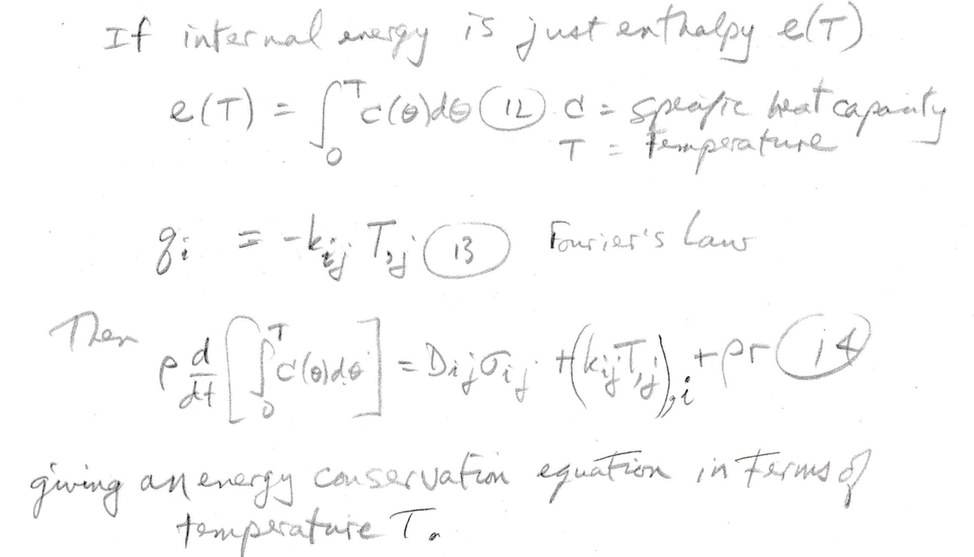 If internal energy is just enthalpy e(T)
e(T) = ∫₀ᵀ c(θ)dθ (12) c = specific heat capacity
T = Temperature
qᵢ = -kᵢⱼ T,ⱼ (13) Fourier's Law
Then
ρ d/dt [∫₀ᵀ c(θ)dθ] = Dᵢⱼσᵢⱼ + (kᵢⱼT,ⱼ),ᵢ + ρr (14)
giving an energy conservation equation in terms of
temperature T.